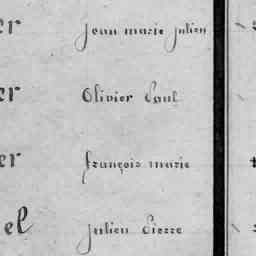 er Jean marie Julien
er Olivier Paul
er françois marie
el Julien Pierre